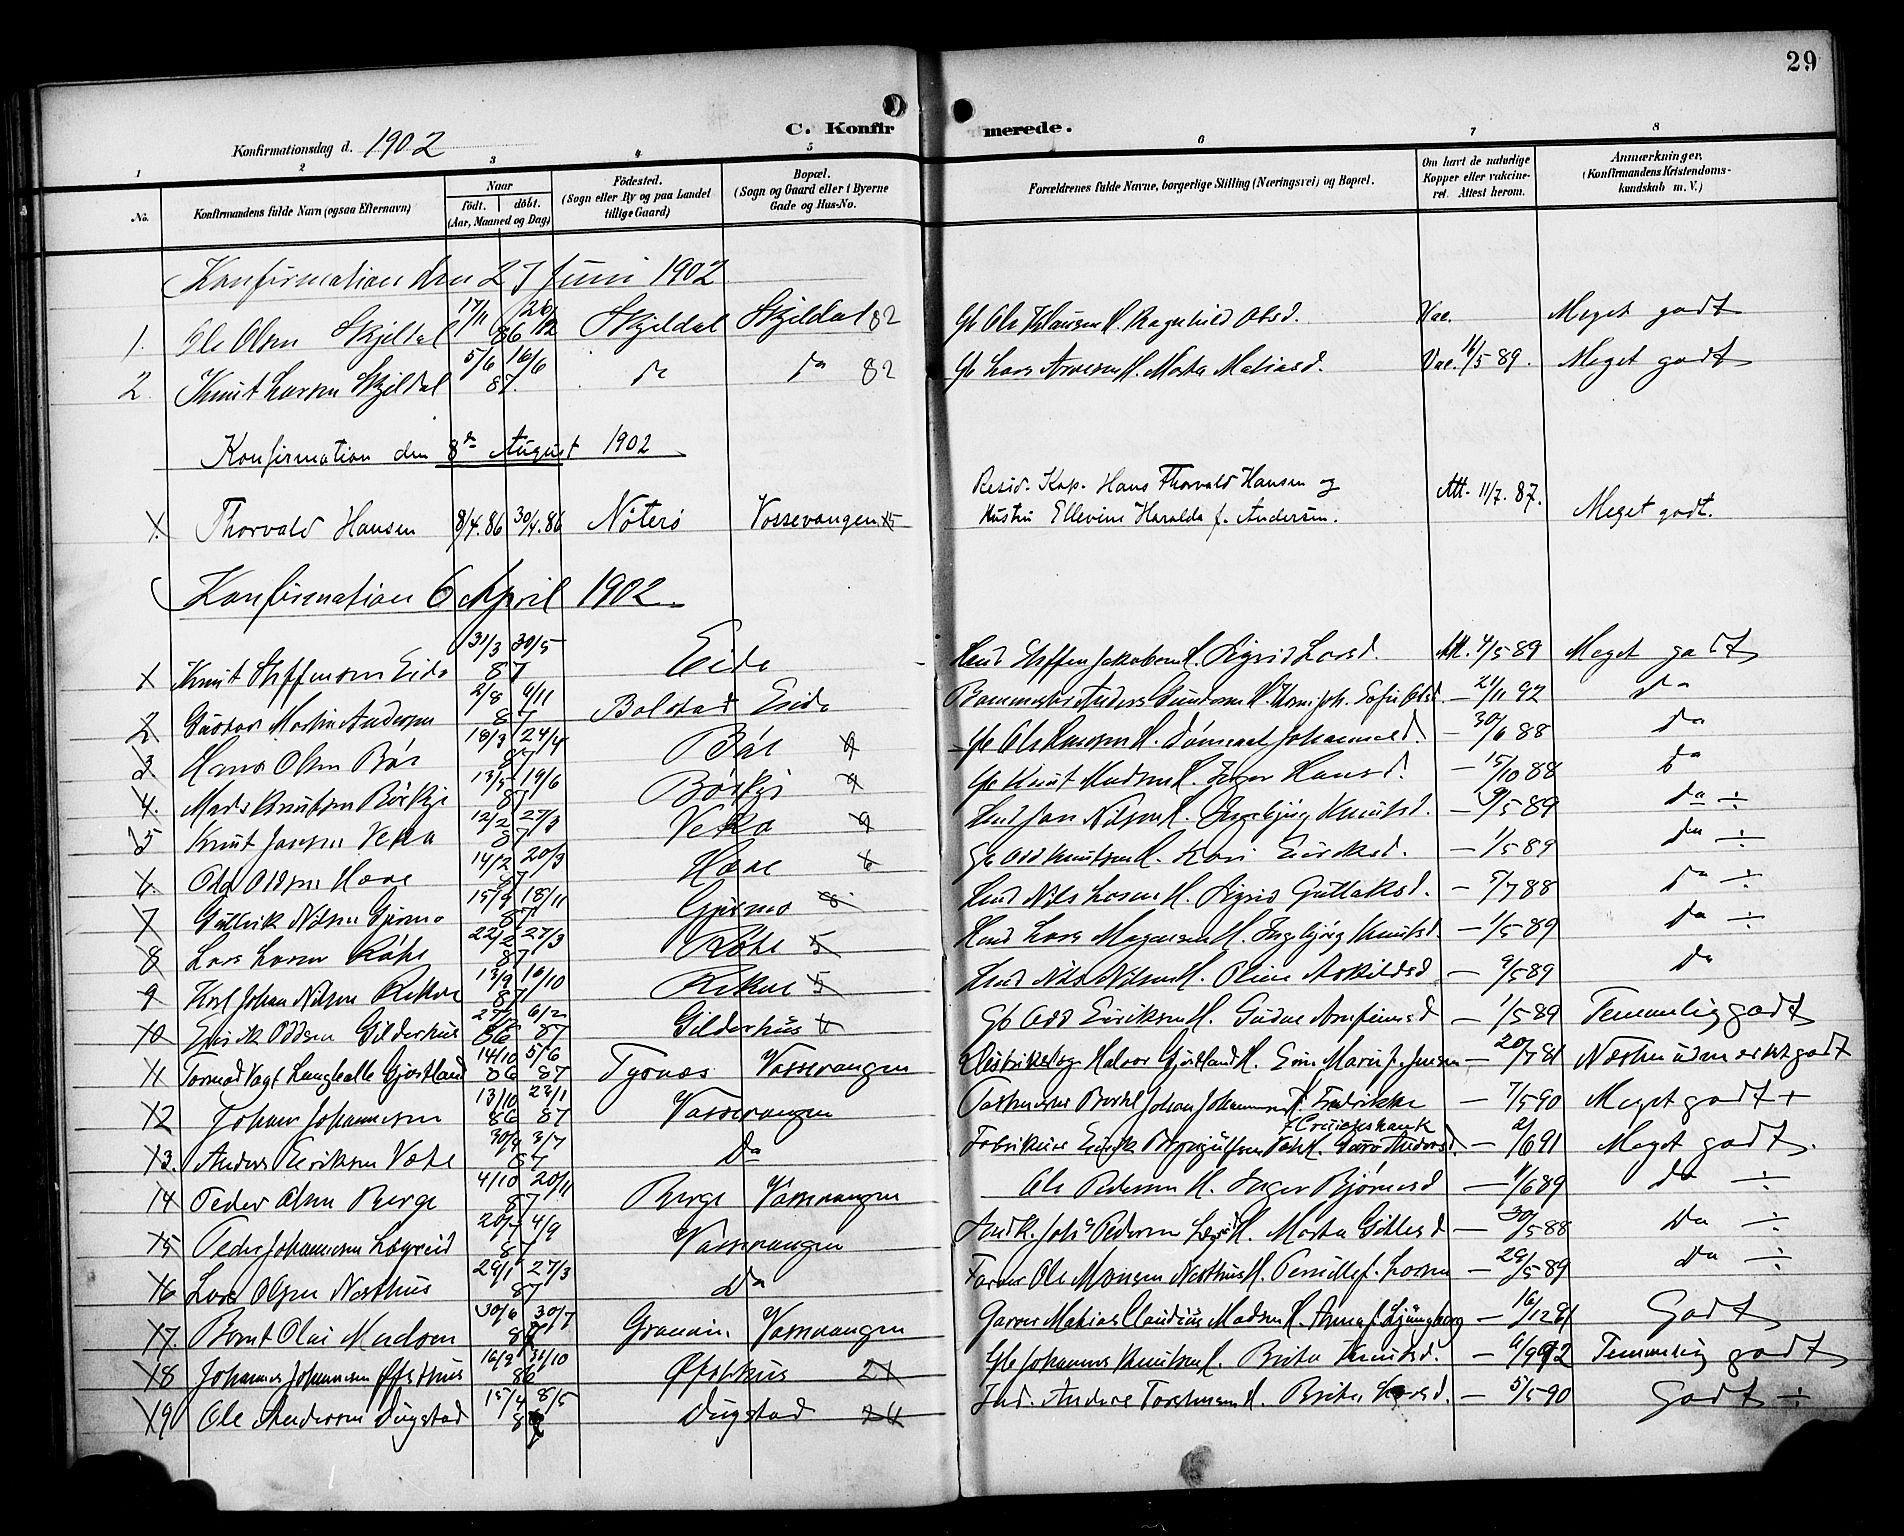 29
C. Konfirmerede.
Konfirmationsdag d. 1902
1 2 3 4 5 6 7 8
No. Konfirmandens fulde Navn (ogsaa Efternavn) Naar født. døbt. (Aar, Maaned og Dag) Fødested. (Sogn eller By og paa Landet tillige Gaard) Bopæl. (Sogn og Gaard eller i Byerne Gade og Hus-No. Forældrenes fulde Navne, borgerlige Stilling (Næringsvei) og Bopæl. Om havt de naturlige Kopper eller vaccineret. Attest herom. Anmærkninger. (Konfirmandens Kristendomskundskab m. V.)
Konfirmation den 27 Juni 1902
1. Ole Olsen Skjeldal 17/11 86 26/12 Skjeldal Skjeldal 82 Gb Ole Ragnhild Olsd. Vac. Meget godt
2. Knut Larsen Skjeldal 5/6 16/6 87 do do 82 Gb Lars H. Marta Matiasd. Vac. 16/5 89. Meget godt
Konfirmation den 8de August 1902
1. Thorvald Hansen 8/4.86 30/4.86 Nøterø Vossevangen 15 Resid. Kap. Hans Thorvald Hansen og Hustru Ellevine Haralda f. Andersen. Att. 11/7. 87. Meget godt.
Konfirmation 6 April 1902
1 Knut Steffensen Eide 31/3 30/5 87 Eide Steffen Jakobsen H. Sigrid Larsd. Att. 4/5 89 Meget godt
2 Gustav Martin Andersen 2/8 6/11 87 Bolstad Eide Banemester Anders H. Sofie Olsd. — 21/11 92 do
3 Hans Olsen Bør 18/3 24/4 87 Bør 9 Gb Ole H. Johannesd. — 30/6 88 do
4. Mads Knutsen Børkje 13/5 19/6 87 Børkje 9 Gb Knut Madsen H. Inger Hansd. — 15/10 88 do
5 Knut Jonsen Veka 12/2 27/3 87 Veka 9 Jon Nilsen H. Ingebjørg Knutsd. — 9/5 89 do ÷
6. Odd Oddsen Hæve 14/2 20/3 87 Hæve 6 Gb Odd Knutsen H. Kari Eiriksd. — 1/5 89 do ÷
7 Gulleik Nilsen Gjermo 15/9 18/11 87 Gjermo 8 Nils Larsen H. Sigrid Gullaksd. — 5/7 88 do ÷
8 Lars Larsen Røte 22/2 27/3 87 Røte 5 Lars Magnesen H. Ingebjørg Knutsd. — 1/5 89 do ÷
9 Karl Johan Nilsen Rekve 13/9 16/10 87 Rekve 5 Nils Nilsen H. Oline Askildsd — 9/5 89 do
10 Eirik Oddsen Gilderhus 86 6/2 87 Gilderhus 4 Gb Odd Eiriksen H. Gudve Arnfinnsd — 1/5 89 Temmelig godt
11 Tormod Vagt Langballe Gjøstland 14/10 86 5/6 87 Tysnæs Vossevangen Distriktslæge Halvor Gjøstland H. Marie f. Jensen — 20/7 81 Næsten udmerket godt
12 Johan Johannesen 13/10 86 22/1 87 Vossevangen Postmester Bertel Johan Johannesen H. Fredrikke f. Cruickshank — 7/5 90 Meget godt +
13. Anders Eiriksen Vete 30/4 3/7 87 Do Fabrikeier Eirik H. — 2/6 91 Meget godt.
14 Peder Olsen Berge 4/10 20/11 87 Berge Vossevangen Ole Pedersen H. Inger Bjørnesd — 4/6 89 do ÷
15 Peder Johannesen Løgreid 4/9 87 Vossevangen Joh's Pedersen H. Marta Gitlesd — 30/5 88 do ÷
16 Lars Olsen Nesthus 29/1 27/3 87 Do Farver Ole Monsen Nesthus H. Pernille f. Larsen — 29/5 89 do ÷
17. Bernt Olai Madsen 30/6 30/7 Graven Vossevangen Garver Matias Claudius Madsen H. Anna f. Ljungberg — 16/12 81 Godt
18 Johannes Johannesen Øfsthus 16/9 31/10 86 Øfsthus 21 Gb Johannes Knutsen H. Brita Knutsd. — 6/9 92 Temmelig godt
19 Ole Andersen Dugstad 15/4 8/5 Dugstad 24 Ind. Anders Torsteinsen H. Brita Larsd. — 5/5 90 Godt ÷